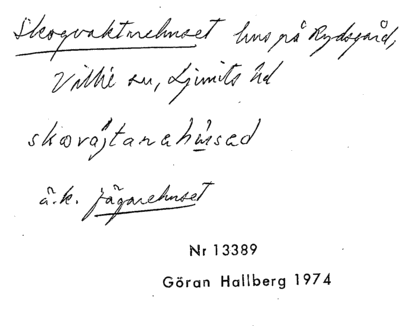 Skogvaktrehuset hus på Rydsgård,
Villie sn, Ljunits hd
skovajtarahused
ä.k. jägarehuset
Nr 13389
Göran Hallberg 1974